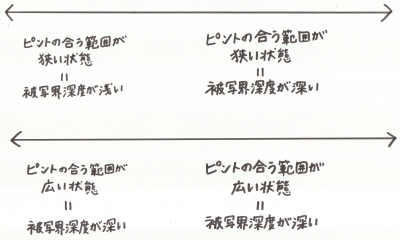 ピントの合う範囲が
狭い状態
=
被写界深度が浅い
ピントの合う範囲が
狭い状態
=
被写界深度が深い
ピントの合う範囲が
広い状態
=
被写界深度が深い
ピントの合う範囲が
広い状態
=
被写界深度が深い